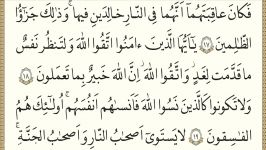 فَكَانَ عَٰقِبَتَهُمَآ أَنَّهُمَا فِى ٱلنَّارِ خَٰلِدَيْنِ فِيهَا ۚ وَذَٰلِكَ جَزَٰٓؤُا۟
ٱلظَّٰلِمِينَ ١٧ يَٰٓأَيُّهَا ٱلَّذِينَ ءَامَنُوا۟ ٱتَّقُوا۟ ٱللَّهَ وَلْتَنظُرْ نَفْسٌ
مَّا قَدَّمَتْ لِغَدٍ ۖ وَٱتَّقُوا۟ ٱللَّهَ ۚ إِنَّ ٱللَّهَ خَبِيرٌۢ بِمَا تَعْمَلُونَ ١٨
وَلَا تَكُونُوا۟ كَٱلَّذِينَ نَسُوا۟ ٱللَّهَ فَأَنسَىٰهُمْ أَنفُسَهُمْ ۚ أُو۟لَٰٓئِكَ هُمُ
ٱلْفَٰسِقُونَ ١٩ لَا يَسْتَوِىٓ أَصْحَٰبُ ٱلنَّارِ وَأَصْحَٰبُ ٱلْجَنَّةِ ۚ